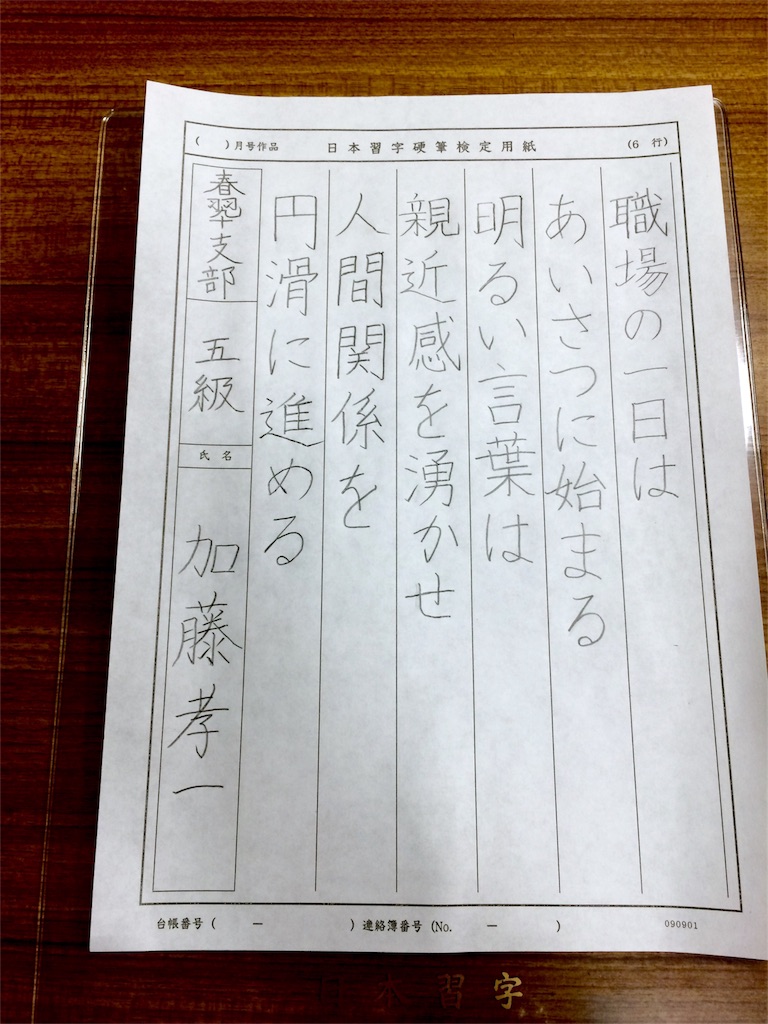 ( )月号作品 日本習字硬筆検定用紙 (6 行)
職場の一日は
あいさつに始まる
明るい言葉は
親近感を湧かせ
人間関係を
円滑に進める
春翠支部
五級
氏名
加藤孝一
台帳番号( ー ) 連絡簿番号(No. ー )
090901
日本習字